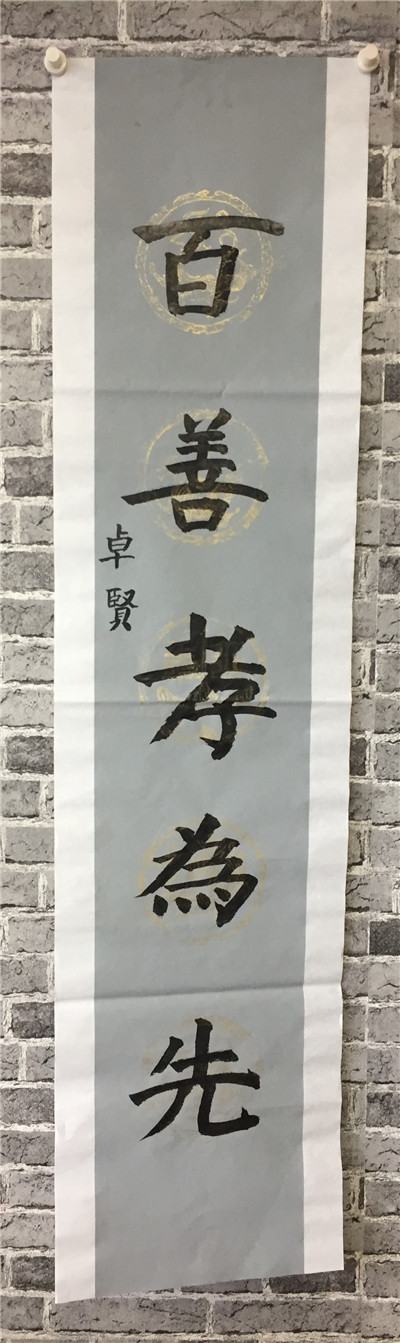 百善孝為先
卓賢